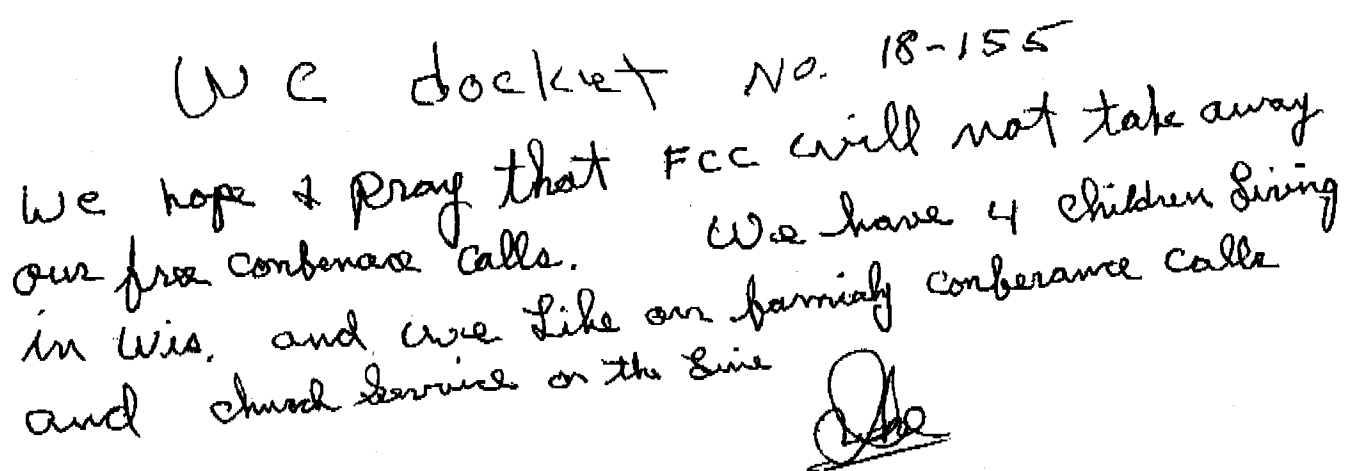 WC docket No. 18-155
We hope & Pray that FCC will not take away
our free conferance calls. We have 4 children Living
in Wis. and we Like our family conferance calls
and church Service on the Line